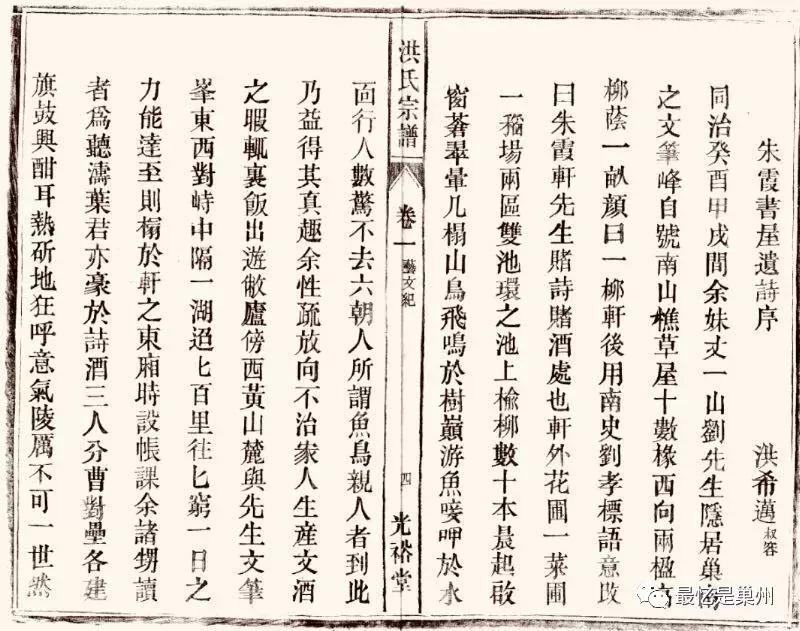 朱霞書屋遺詩序
洪希邁叔容
同治癸酉甲戌間余妹丈一山劉先生隱居巢
之文筆峰自號南山樵草屋十數椽西向兩楹
柳蔭一畝顏曰一柳軒後用南史劉孝標語意改
曰朱霞軒先生賭詩賭酒處也軒外花圃一菜圃
一稻場兩區雙池環之池上榆柳數十本晨起啟
窗蒼翠暈几榻山鳥飛鳴於樹巔游魚唼呷於水
洪氏宗譜
卷一
藝文紀
四
光裕堂
面行人數驚不去六朝人所謂魚鳥親人者到此
乃益得其真趣余性疏放向不治家人生產文酒
之暇輒裹飯出遊敝廬傍西黃山麓與先生文筆
峯東西對峙中隔一湖迢匕百里往匕窮一日之
力能達至則榻於軒之東廂時設帳課余諸甥讀
者為聽濤葉君亦豪於詩酒三人分曹對壘各建
旗鼓興酣耳熱斫地狂呼意氣陵厲不可一世然
最忆是巢州